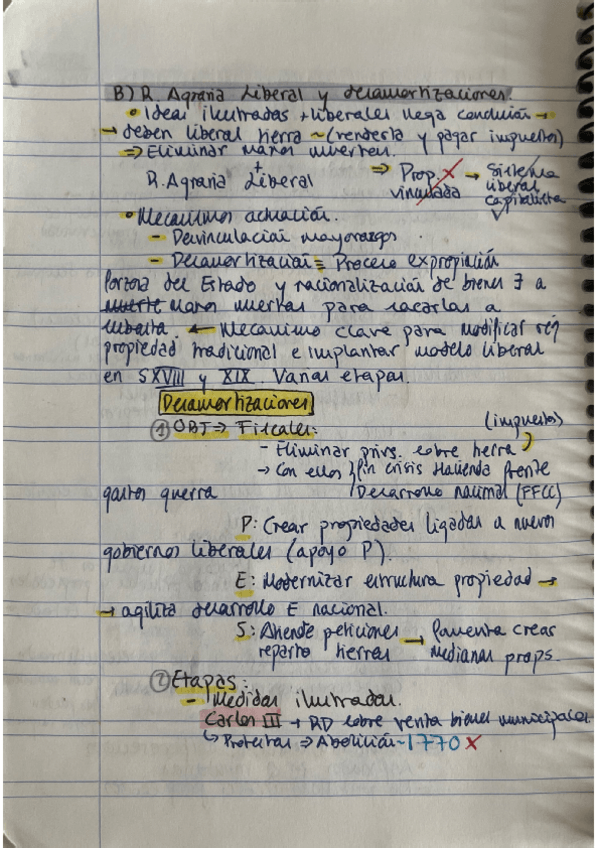 B) R. Agraria Liberal y desamortizaciones.
• Ideas ilustradas + liberales llega conclusión →
→ deben liberal tierra ~ (venderla y pagar impuestos)
⇒ Eliminar manos muertas.
R. Agraria + Liberal ⇒ Prop. vinculada X → Sistema liberal capitalista ✓
• Mecanismos actuación.
- Desvinculación mayorazgos
- Desamortización = Proceso expropiación
forzosa del Estado y nacionalización de bienes ∃ a
muerte manos muertas para sacarlas a
subasta. ← Mecanismo clave para modificar rég
propiedad tradicional e implantar modelo liberal
en SXVIII y XIX. Varias etapas.
Desamortizaciones
① OBJ ⇒ Fiscales: (impuestos)
- Eliminar privs. sobre tierra
→ Con ellos fin crisis Hacienda frente
gastos guerra / Desarrollo nacional (FFCC)
P: Crear propiedades ligadas a nuevos
gobiernos liberales (apoyo P).
E: Modernizar estructura propiedad →
→ agiliza desarrollo E nacional.
S: Atiende peticiones → Fomenta crear
reparto tierras medianas props.
② Etapas:
- Medidas ilustradas.
Carlos III → RD sobre venta bienes municipales
↳ Protestas ⇒ Abolición ~ 1770 X